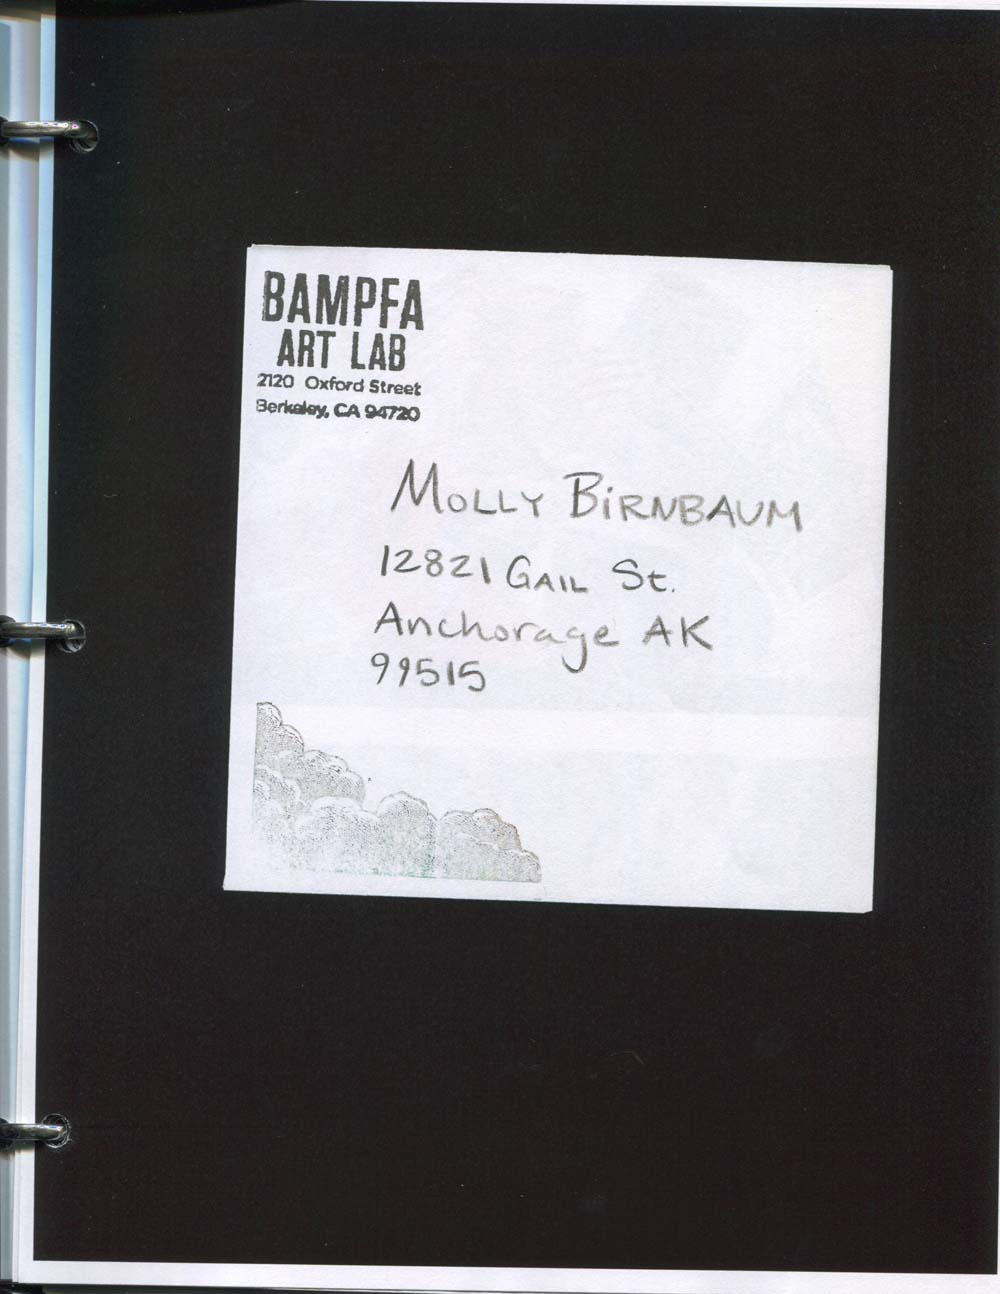 BAMPFA
ART LAB
2120 Oxford Street
Berkeley, CA 94720
MOLLY BiRNBAUM
12821 GAIL St.
Anchorage AK
99515